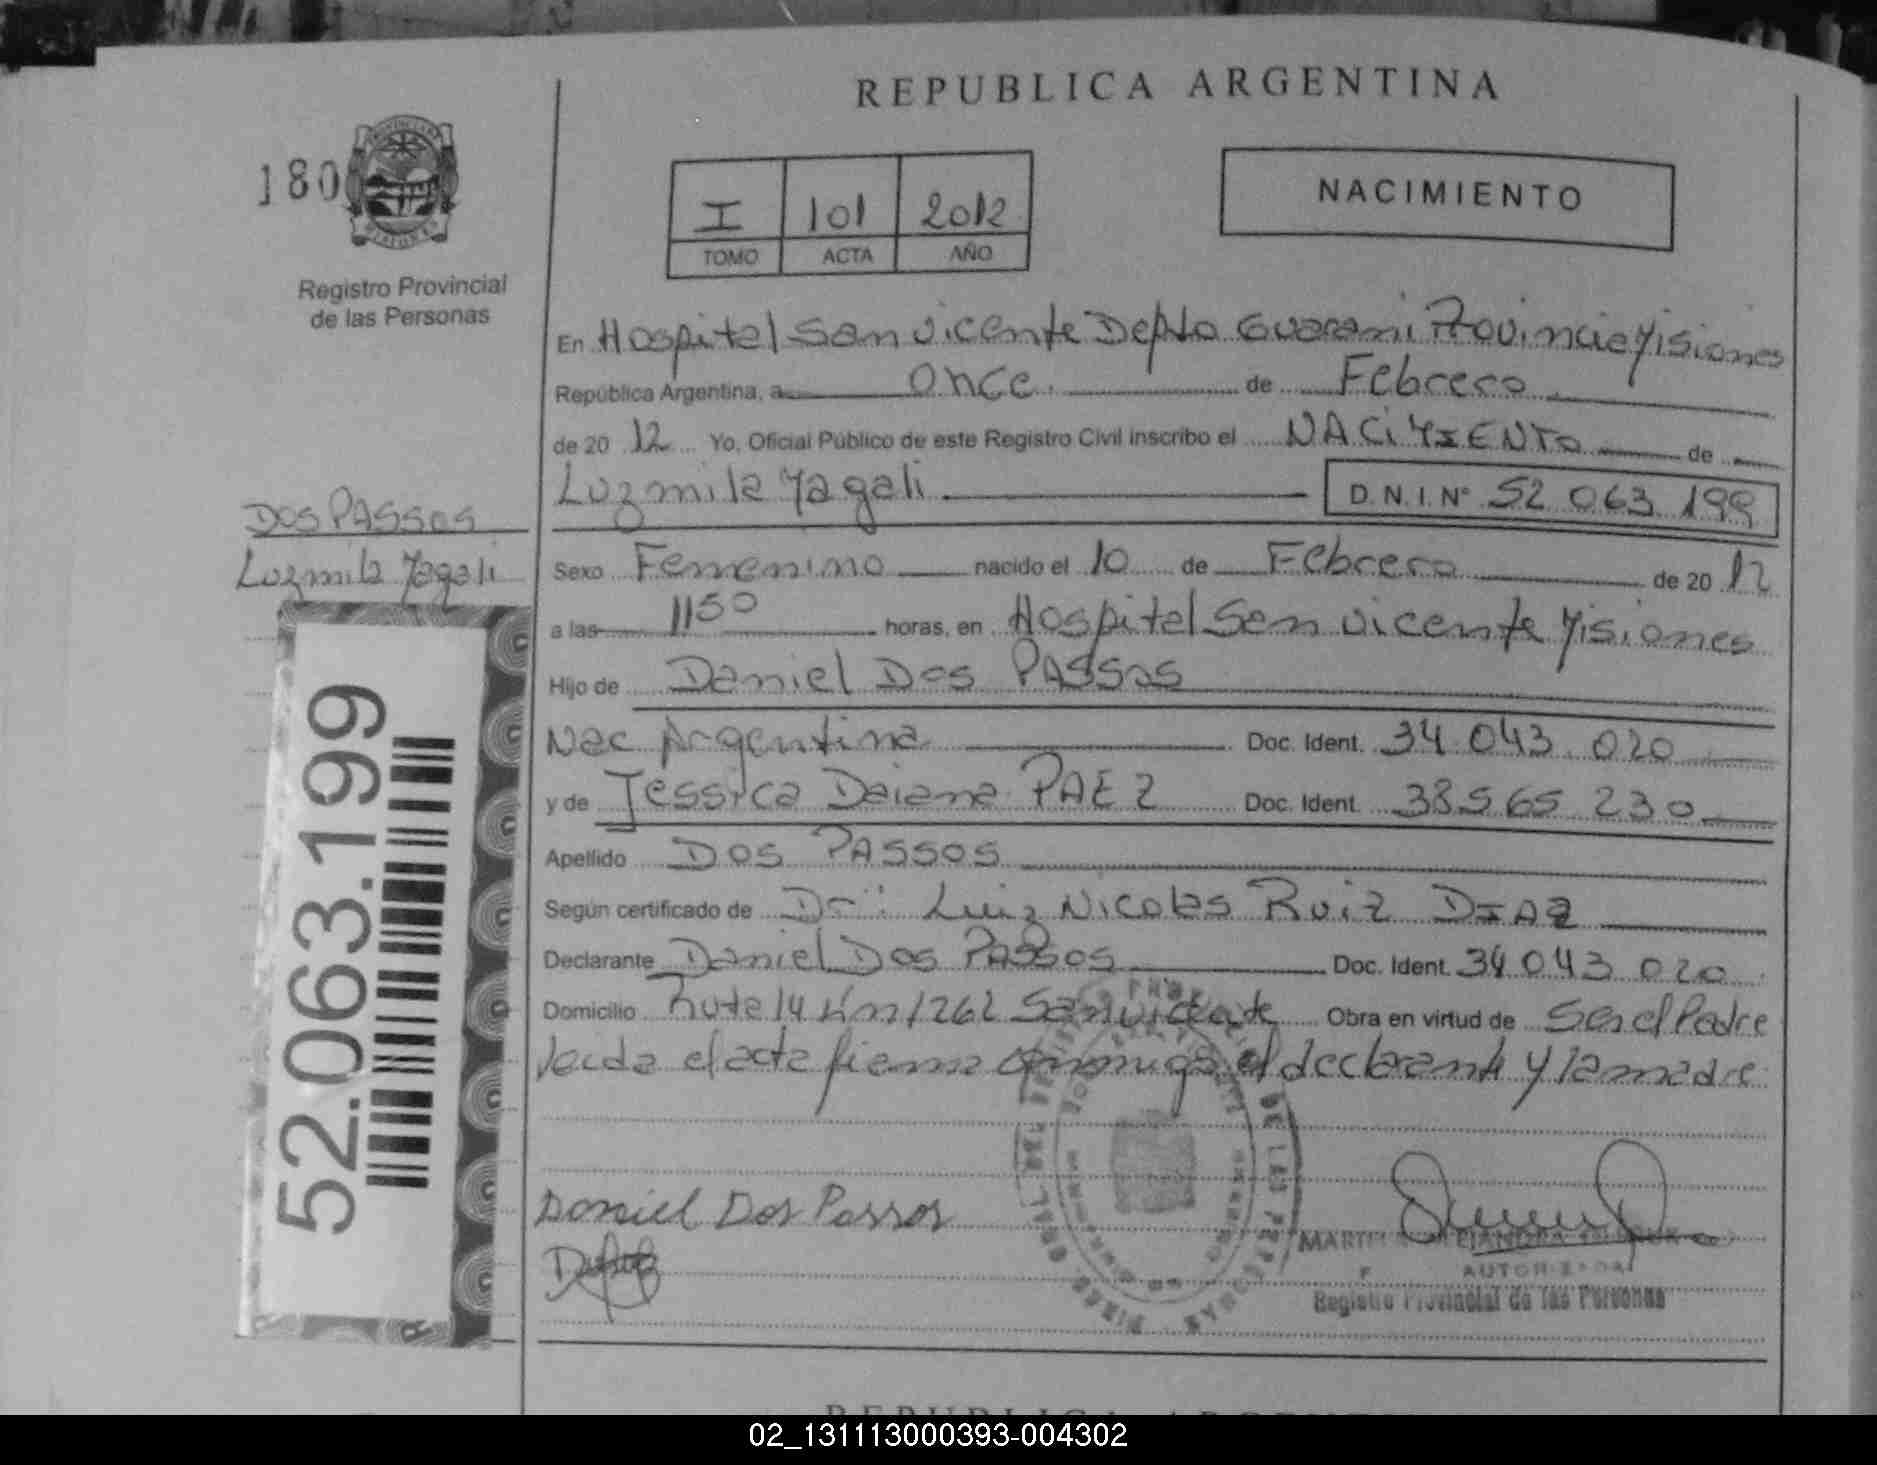 REPUBLICA ARGENTINA
180
PROVINCIA DE
MISIONES
Registro Provincial
de las Personas
I 101 2012
TOMO ACTA AÑO
NACIMIENTO
En Hospital San Vicente Depto Guarani Provincia Misiones
República Argentina, a once de Febrero
de 2012 Yo, Oficial Público de este Registro Civil inscribo el NACIMIENTO de
Luzmila Magali D.N.I. N° 52 063 199
DOS PASSOS
Luzmila Magali
Sexo Femenino nacido el 10 de Febrero de 2012
a las 1150 horas, en Hospital San Vicente Misiones
Hijo de Daniel Dos PASSOS
Nac Argentina Doc. Ident. 34 043 020
y de Jessica Daiana PAEZ Doc. Ident. 38 565 230
Apellido DOS PASSOS
Según certificado de Dr: Luiz Nicolas Ruiz DIAZ
Declarante Daniel Dos PASSOS Doc. Ident. 34 043 020
Domicilio Ruta 14 km 1262 San Vicente Obra en virtud de Ser el Padre
leida el acta firma conmigo el declarante y la madre
52.063.199
Daniel Dos Passos
DE LAS PERSONAS
ALEJANDRA
AUTORIZADA
Registro Provincial de las Personas
REPUBLICA ARGENTINA
02_131113000393-004302